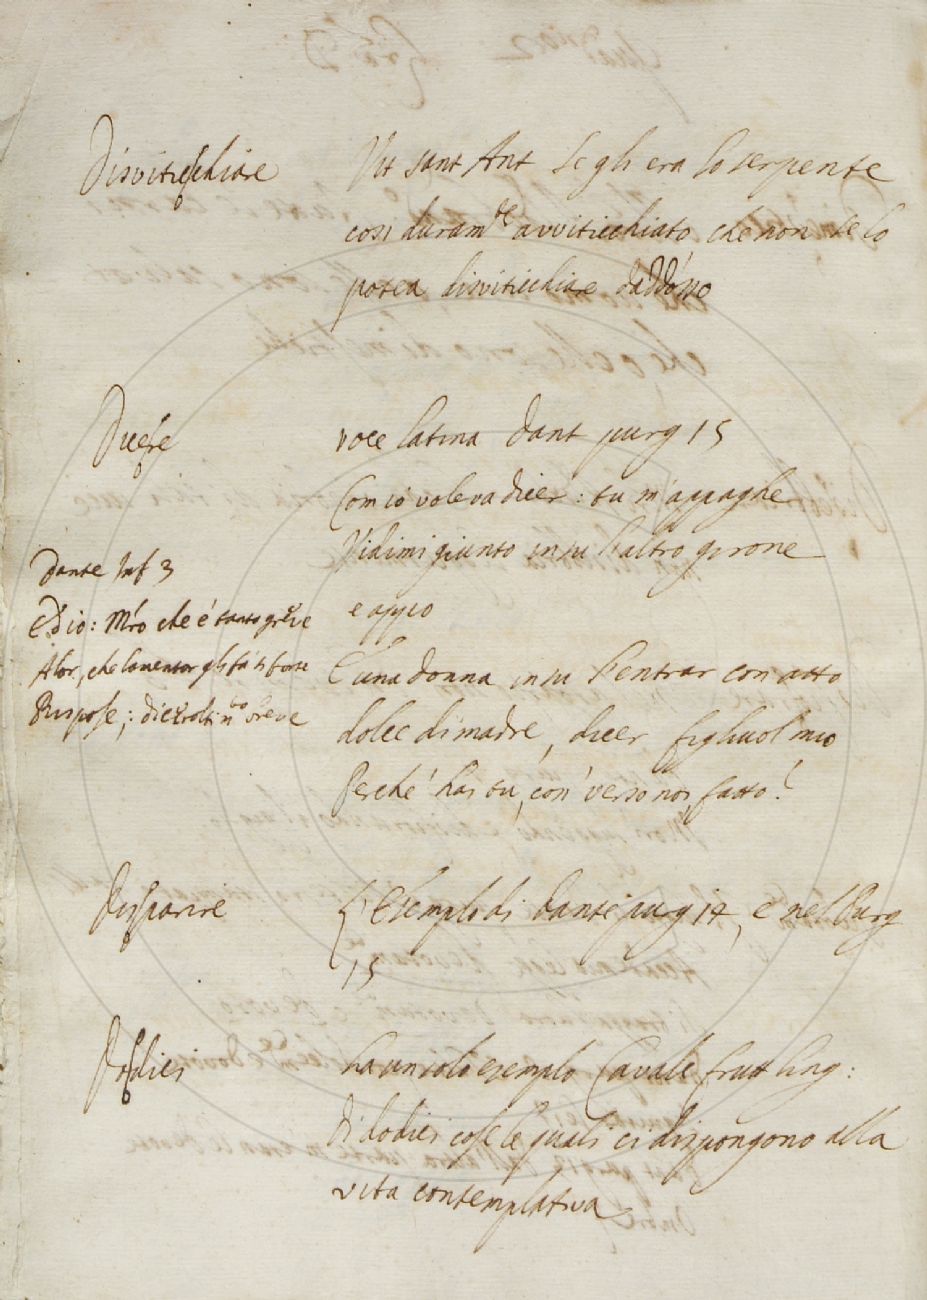 Disviticchiare
Vit sant Ant Se gli era lo serpente
così duram.te avviticchiato, che non se lo
potea disviticchiare daddosso
Dicere
voce latina Dant purg 15
Com io voleva dicer: tu m'appaghe
Vidimi giunto in su l'altro girone
e appo
E una donna in su l'entrar con atto
dolce di madre, dicer, figliuol mio
Perché hai tu, così verso noi fatto?
Dante Inf 3
Ed io: M'ro che é tanto greve
A lor, che lamentar gli fá sì forte
Rispose,: dicerolti m.to breve
Disparire
Esemplo di Dante purg 14, e nel Purg
15
Dodici
ha un solo esemplo Cavalc frutt ling:
Di dodici cose le quali ci dispongono alla
vita contemplativa